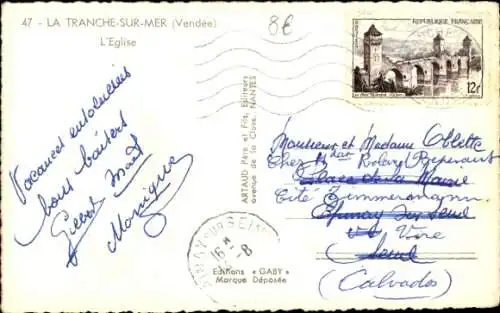 47 - LA TRANCHE-SUR-MER (Vendée)
L'Eglise
8€
REPUBLIQUE FRANÇAISE
12F
Vacances ensoleillées
bons baisers
Monique
ARTAUD Père et Fils, Editeurs
avenue de la Close, NANTES
EPINAY SUR SEINE
16
-8
Editions « GABY »
Marque Déposée
Monsieur et Madame
Chez Mr Roland
Place de la Mairie
Cité Zimmermann
Epinay sur Seine
Vire
(Calvados)